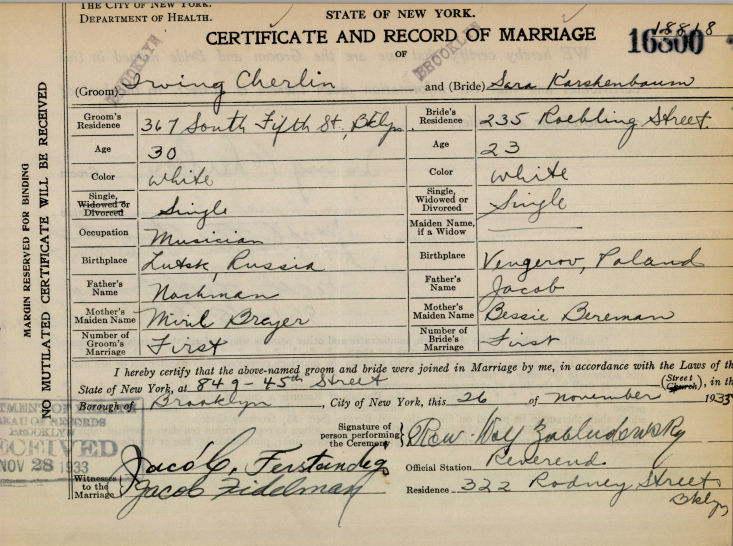 THE CITY OF NEW YORK.
DEPARTMENT OF HEALTH.
STATE OF NEW YORK.
CERTIFICATE AND RECORD OF MARRIAGE
OF
18818
16800
BROOKLYN
BROOKLYN
(Groom) Irving Cherlin and (Bride) Sara Karshenbaum
Groom's Residence 367 South Fifth St., Bklyn. Bride's Residence 235 Roebling Street.
Age 30 Age 23
Color White Color White
Single, Widowed or Divorced Single Single, Widowed or Divorced Single
Occupation Musician Maiden Name, if a Widow
Birthplace Lutsk, Russia Birthplace Vengerov, Poland
Father's Name Nachman Father's Name Jacob
Mother's Maiden Name Miril Brayer Mother's Maiden Name Bessie Bereman
Number of Groom's Marriage First Number of Bride's Marriage First
I hereby certify that the above-named groom and bride were joined in Marriage by me, in accordance with the Laws of th
State of New York, at 849-45th Street (Street Church), in th
Borough of Brooklyn, City of New York, this 26 of November 1933
Signature of person performing the Ceremony Rev. Wolf Zabludowsky
Official Station Reverend
Witnesses to the Marriage Jacob
Jacob Fidelman
Residence 322 Rodney Street
Bklyn
MARGIN RESERVED FOR BINDING
NO MUTILATED CERTIFICATE WILL BE RECEIVED
BROOKLYN
NOV 28 1933